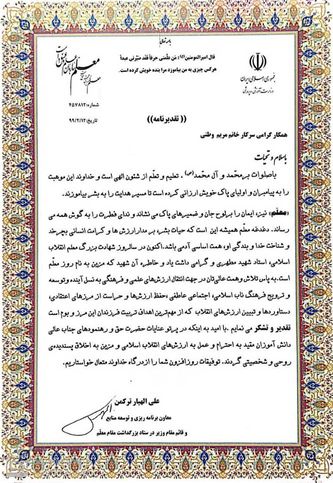 باسمه تعالی
قال امیرالمومنین (ع): مَن عَلَّمَنی حرفاً فَقَد صَیَّرَنی عَبداً
هرکس چیزی به من بیاموزد مرا بنده خویش کرده است.
جمهوری اسلامی ایران
وزارت آموزش و پرورش
شماره: ۴۵۷۸۱۲
تاریخ: ۹۹/۲/۱۲
((تقدیرنامه))
همکار گرامی سرکار خانم مریم وطنی
باسلام و تحیات
با صلوات بر محمد و آل محمد (ص)، تعلیم و تعلّم از شئون الهی است و خداوند این موهبت
را به پیامبران و اولیای پاک خویش ارزانی کرده است تا مسیر هدایت را به بشر بیاموزند.
معلّم؛ نیز، ایمان را بر لوح جان و ضمیرهای پاک می نشاند و ندای فطرت را به گوش همه می
رساند. دغدغه معلّم همیشه این است که حیات بشر، بر مدار ارزش‌ها و کرامت انسانی بچرخد
و شناخت خدا و بندگی او، همت اساسی آدمی باشد. اکنون در سالروز شهادت بزرگ معلم انقلاب
اسلامی، استاد شهید مطهری و گرامی داشت یاد و خاطره‌ی آن شهید که مزین به نام روز معلم
است، به پاس تلاش و همت عالی‌تان در جهت انتقال ارزش‌های علمی و فرهنگی به نسل آینده و توسعه
و ترویج فرهنگ ناب اسلامی، اجتماعی عاطفی، حفظ ارزش‌ها و حراست از مرزهای اعتقادی،
دستاوردها و تبیین ارزش‌های انقلاب که از مهم‌ترین اهداف تربیت فرزندان این مرز و بوم است
تقدیر و تشکر می نمایم. با امید به اینکه در پرتو عنایات حضرت حق و رهنمودهای جناب عالی
دانش‌آموزان مقید به احترام و عمل به ارزش‌های انقلاب اسلامی و مزین به اخلاق پسندیده‌ی
روحی و شخصیتی گردند. توفیقات روزافزون شما را از درگاه خداوند متعال خواستاریم.
علی الهیار ترکمن
معاون برنامه ریزی و توسعه منابع
و قائم مقام وزیر در ستاد بزرگداشت مقام معلّم